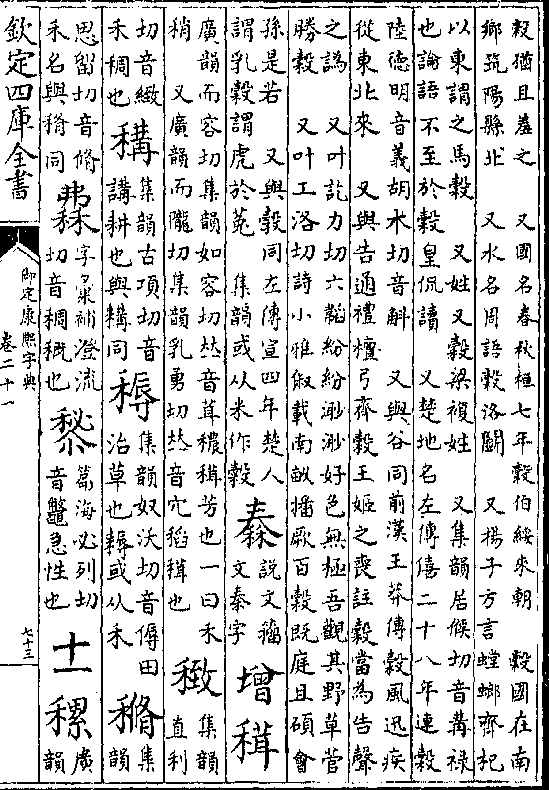 穀猶且羞之　又國名春秋桓七年穀伯綏來朝　穀國在南
鄉筑陽縣北　又水名周語穀洛鬬　又揚子方言螳螂齊杞
以東謂之馬穀　又姓又穀梁複姓　又集韻居候切音冓祿
也論語不至於穀皇侃讀　又楚地名左傳僖二十八年連穀
陸德明音義胡木切音斛　又與谷同前漢王莽傳穀風迅疾
從東北來　又與告通禮檀弓齊穀王姬之喪註穀當為告聲
之譌　又叶訖力切六韜紛紛渺渺好色無極吾觀其野草菅
勝穀　又叶工洛切詩小雅俶載南畝播厥百穀既庭且碩曾
孫是若　又與穀同左傳宣四年楚人
謂乳穀謂虎於菟　集韻或从米作糓
說文籀
文秦字
增
廣韻而容切集韻如容切𠀤音茸穠芳也一曰禾
稍　又廣韻而隴切集韻乳勇切𠀤音宂稻也
集韻
直利
切音緻
禾稠也
集韻古項切音
講耕也與耩同
集韻奴沃切音傉田
治草也耨或从禾
集
韻
思留切音脩
禾名與同
字彙補澄流
切音稠穊也
篇海必列切
音鼈急性也
十一
廣
韻
欽定四庫全書
御定康熙字典
卷二十一
七十三